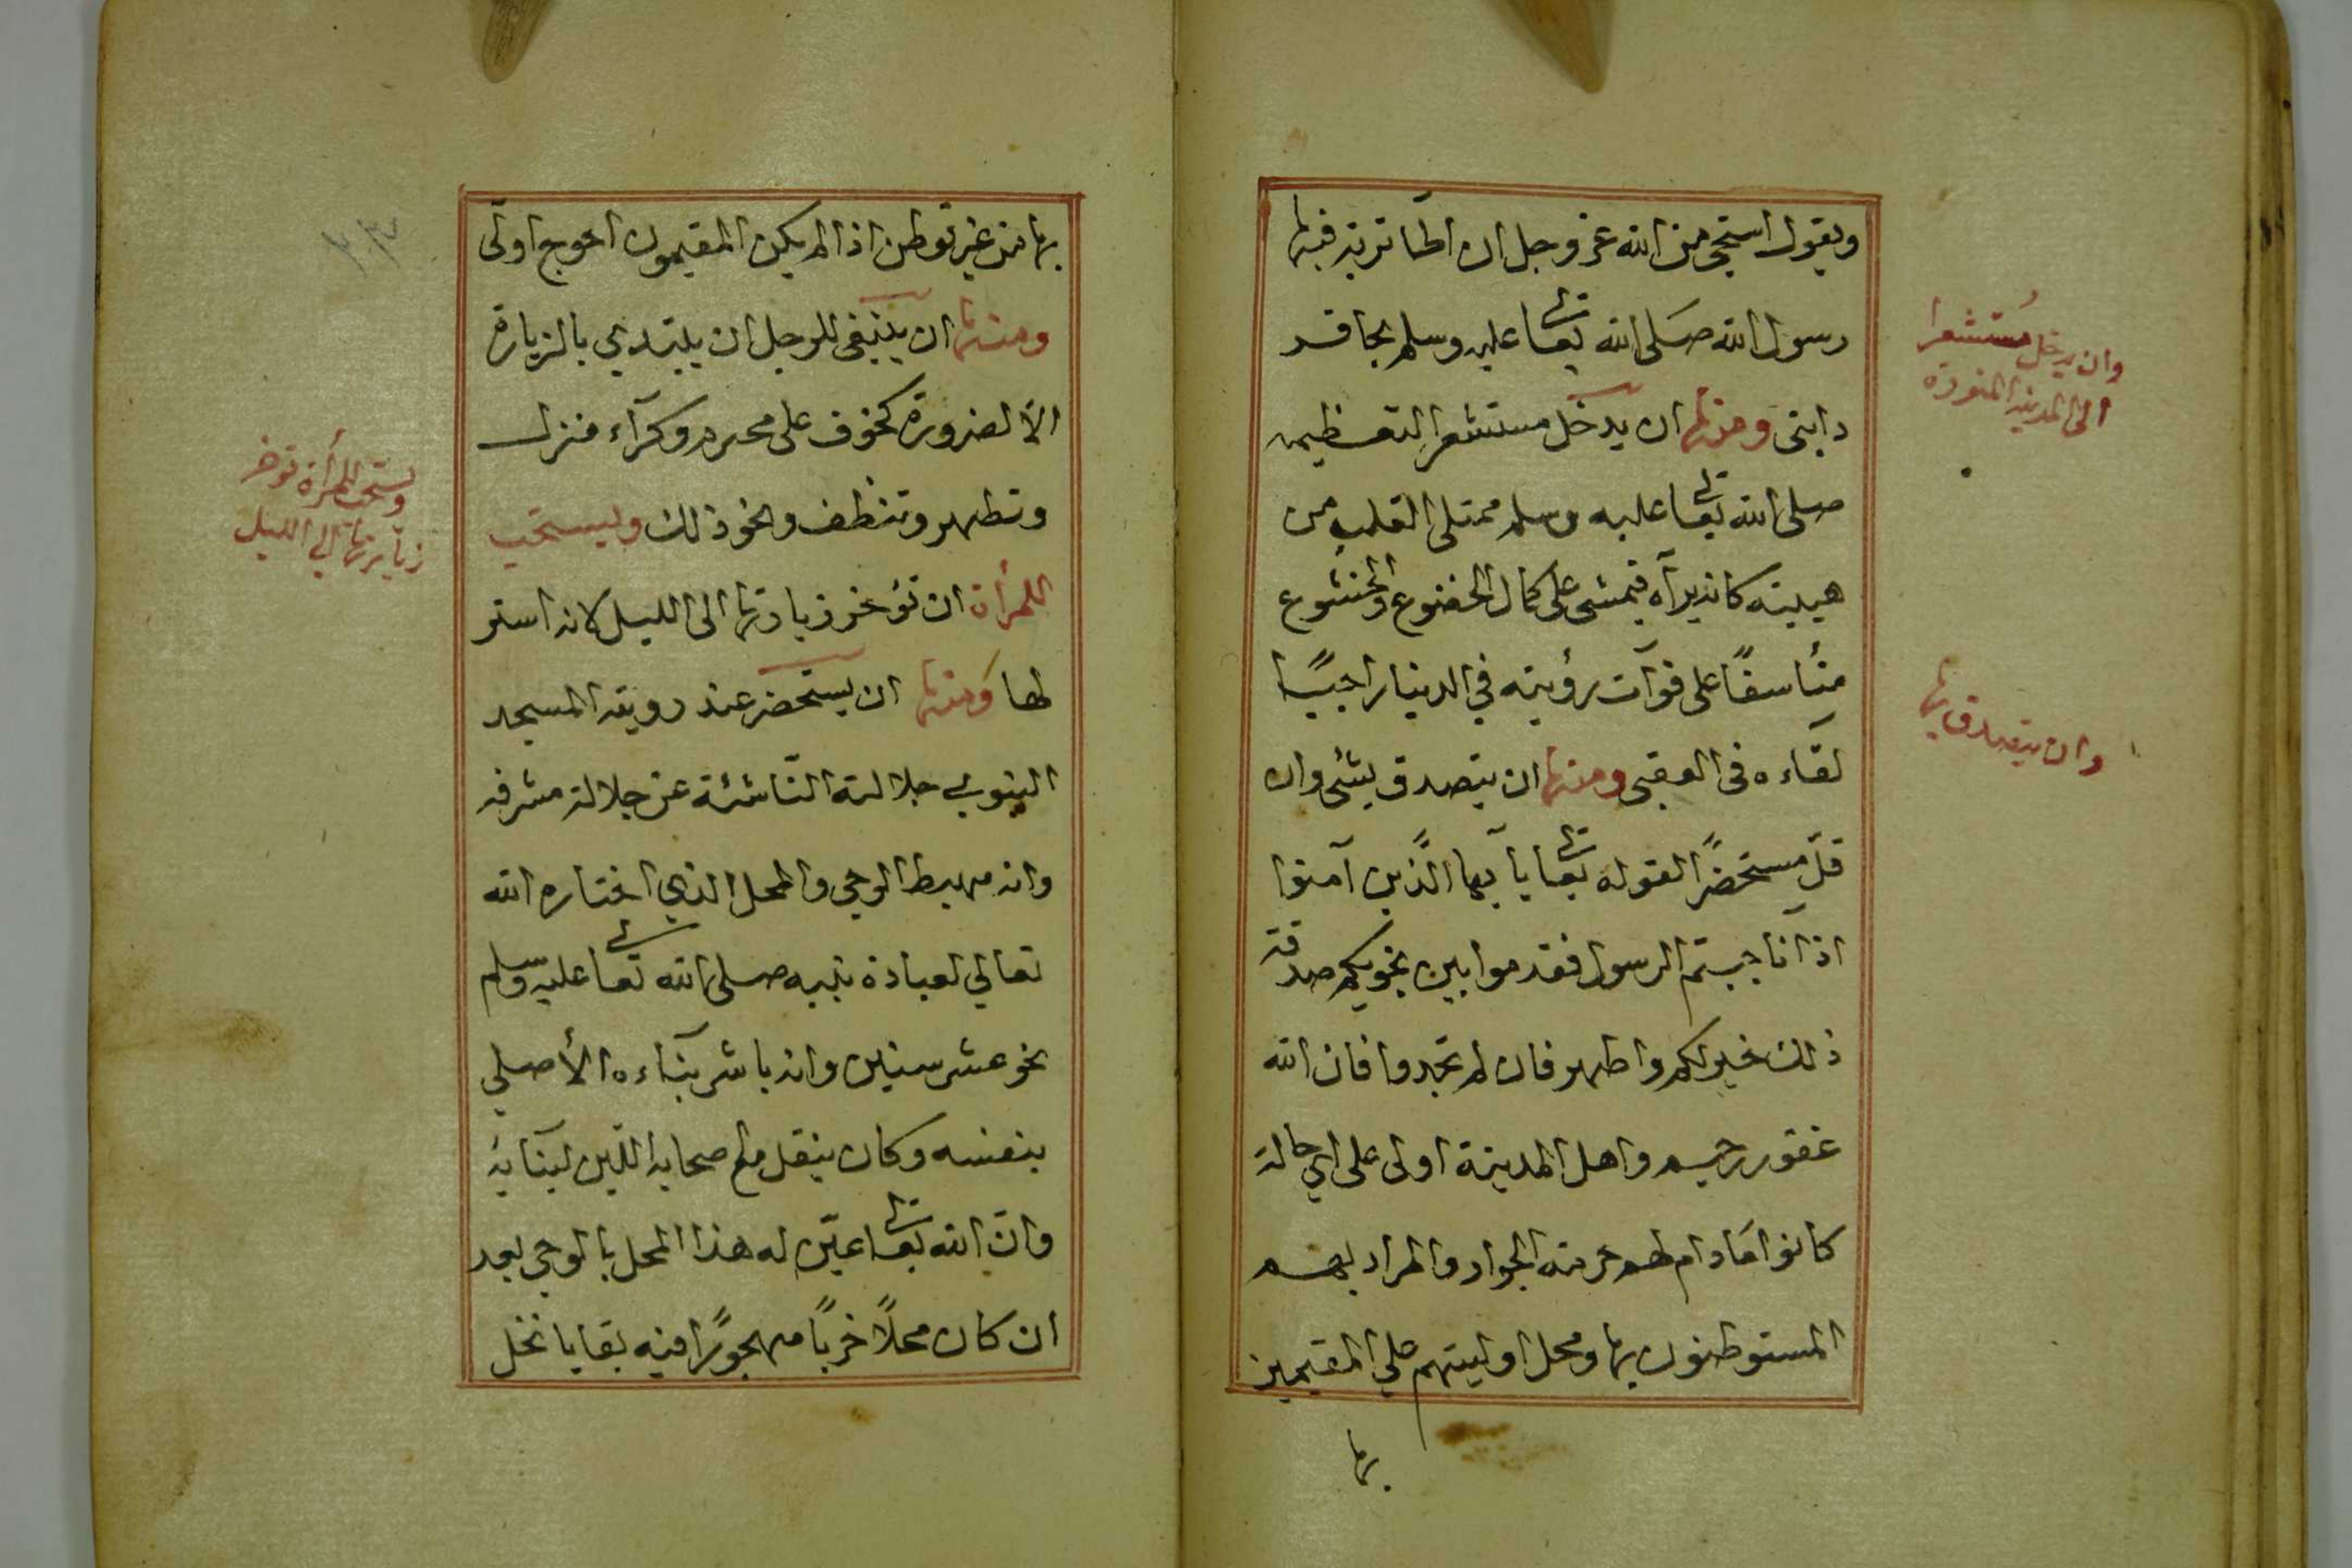 ويقول استحيى من الله عز وجل ان اطأ تربة فيها
رسول الله صلى الله تعالى عليه وسلم بحافر
دابتى ومنها ان يدخل مستشعرا لتعظيمه
صلى الله تعالى عليه وسلم ممتلى القلب من
هيبته كانه يراه فيمشى على كمال الخضوع والخشوع
متأسفًا على فوات رؤيته في الدينا راجيًا
لقاءه فى العقبى ومنها ان يتصدق بشئ وان
قل مستحضرًا لقوله تعالى يا ايها الذين آمنوا
اذا ناجيتم الرسول فقدموا بين نجويكم صدقة
ذلك خير لكم واطهر فان لم تجدوا فان الله
غفور رحيم واهل المدينة اولى على اي حالة
كانوا مادام لهم حرمة الجوار والمراد بهم
المستوطنون بها ومحل اوليتهم على المقيمين
بها
وان يدخل مستشعرا
الى المدينة المنورة
وان يتصدق بها
بها من غير توطن اذا لم يكن المقيمون احوج اولى
ومنها ان ينبغى للرجل ان يبتدي بالزيارة
الا لضرورة كخوف على محرم وكرآء منزل
وتطهر وتنظف ونحو ذلك وليستحب
اللمرأة ان تؤخر زيارتها الى الليل لانه استر
لها ومنها ان يستحضر عند روية المسجد
النبوي جلالته الناشئة عن جلالة مشرفه
وانه مهبط الوحي والمحل الذي اختاره الله
تعالي لعبادة نبيه صلى الله تعالى عليه وسلم
نحو عشر سنين وانه باشر بناءه الأصلي
بنفسه وكان ينقل مع صحابه اللبن لبنايه
وان الله تعالى عين له هذا المحل بالوحي بعد
ان كان محلاً خربًا مهجورًا فيه بقايا نخل
ويستحب للمرأة تؤخر
زيارتها الي الليل